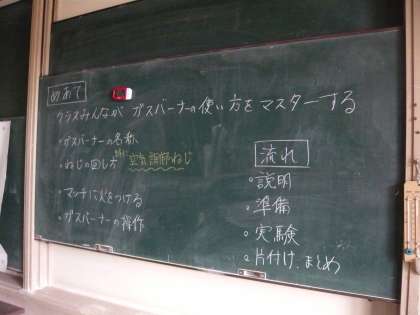 めあて
クラスみんなが ガスバーナーの使い方をマスターする
・ガスバーナーの名称
・ねじの回し方 特に 空気調節ねじ
・マッチに火をつける
・ガスバーナーの操作
流れ
・説明
・準備
・実験
・片付け、まとめ